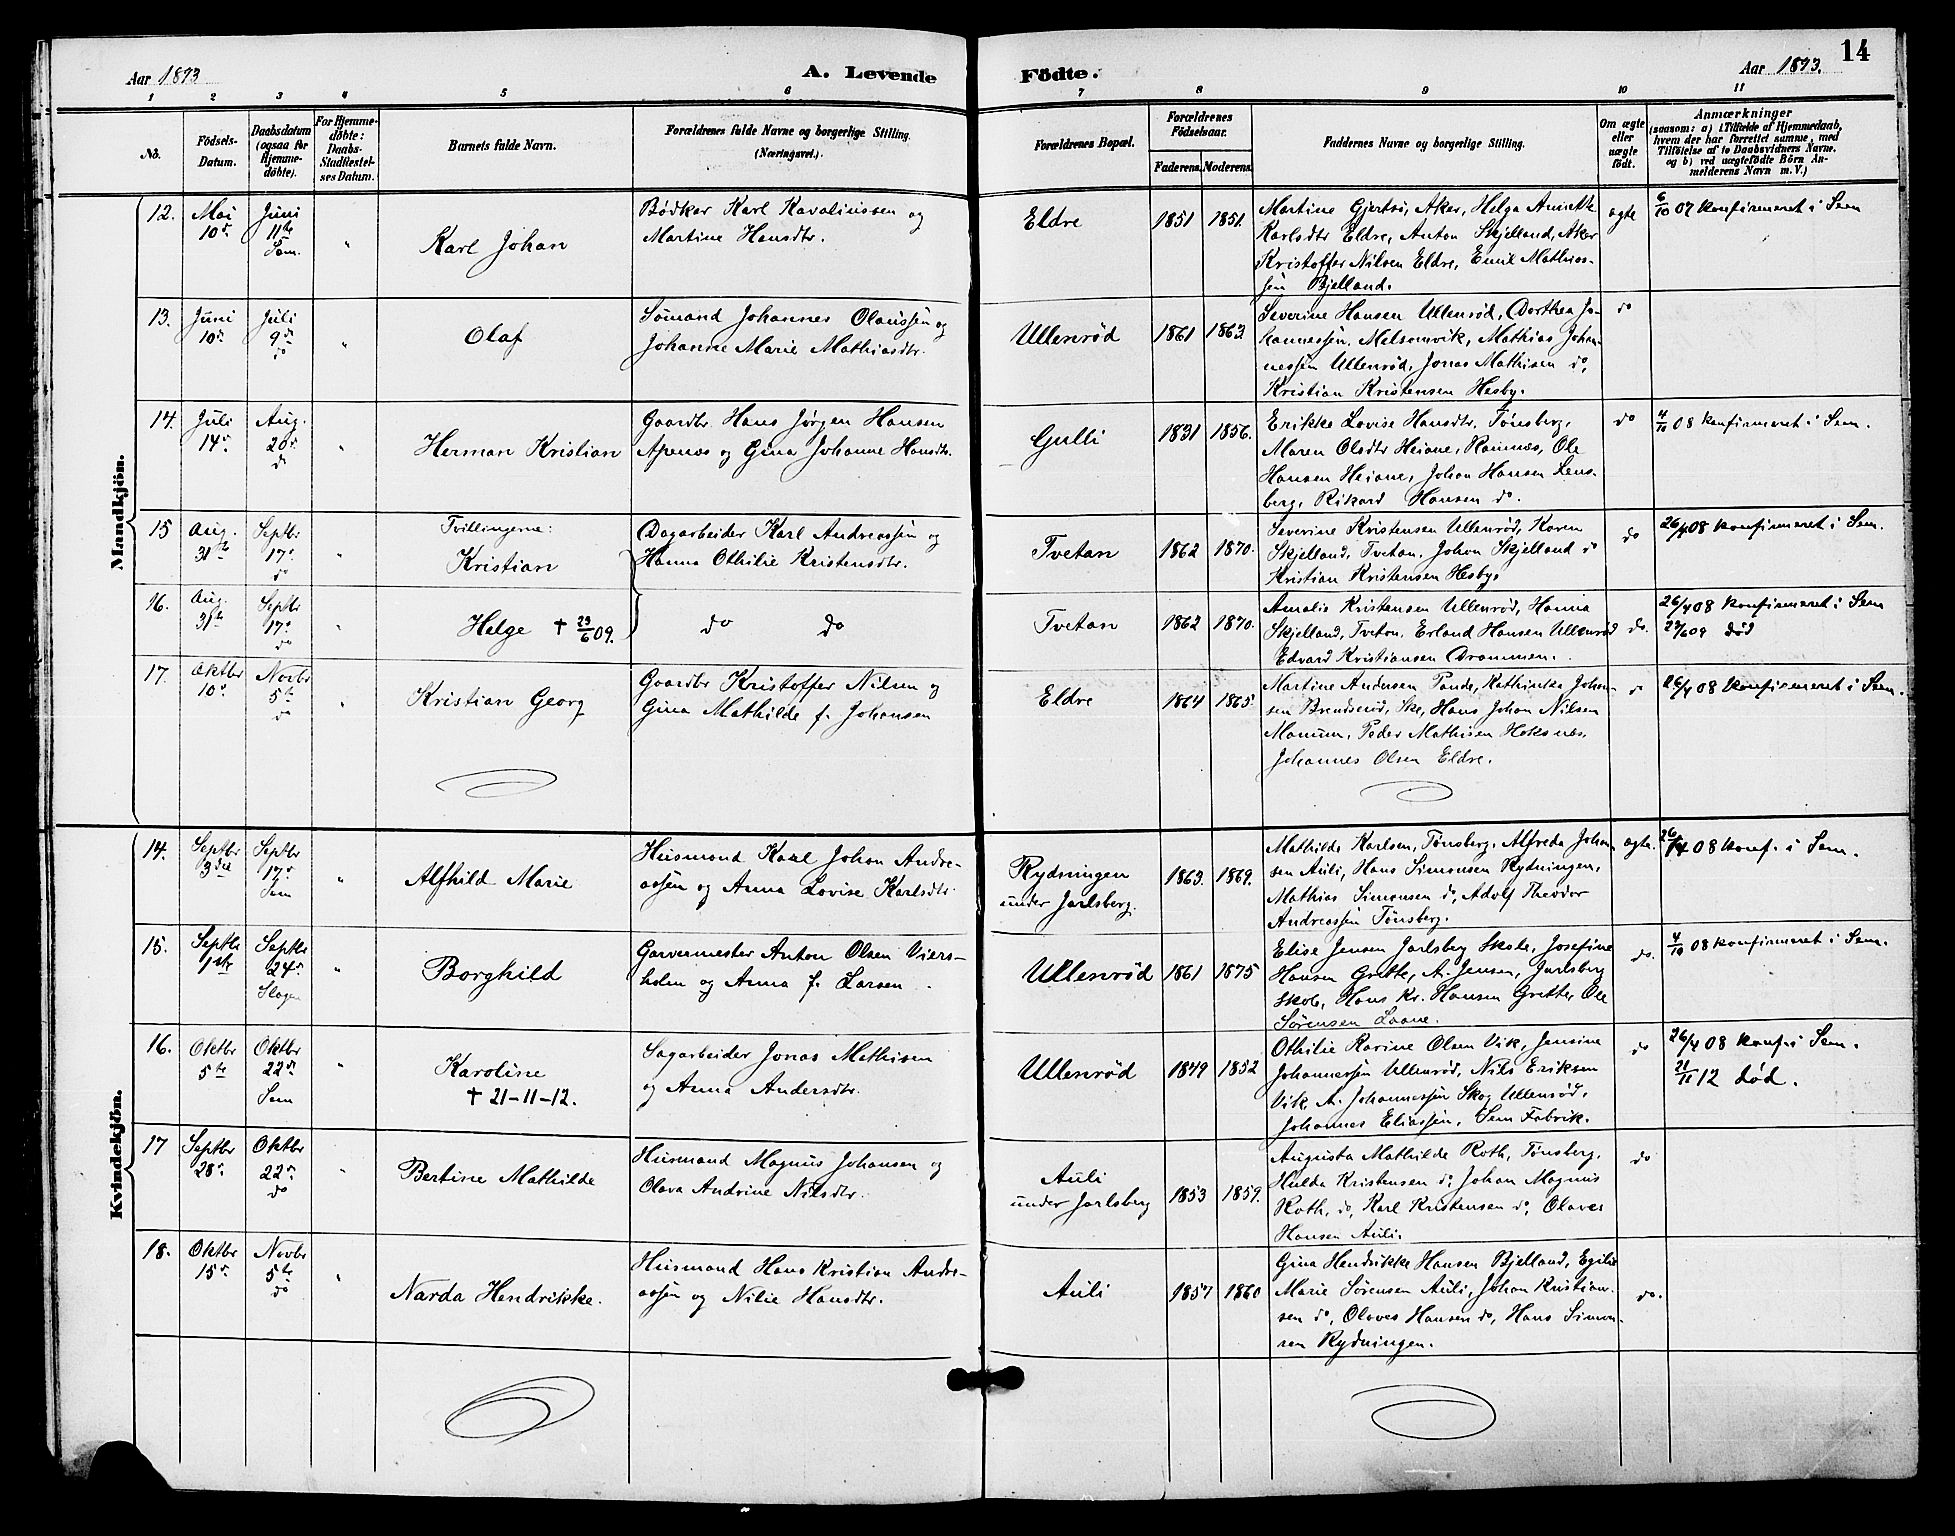 14
Aar 1893
A. Levende
Födte.
Aar 1893.
1 2 3 4 5 6 7 8 9 10 11
No.
Födsels-
Datum.
Daabsdatum
(ogsaa for
Hjemme-
döbte).
For Hjemme-
döbte:
Daabs-
Stadfæstel-
ses Datum.
Barnets fulde Navn.
Forældrenes fulde Navne og borgerlige Stilling.
(Næringsvei.)
Forældrenes Bopæl.
Forældrenes
Födselsaar.
Faderens. Moderens.
Faddernes Navne og borgerlige Stilling.
Om ægte
eller
uægte
födt.
Anmærkninger
(saasom: a) i Tilfælde af Hjemmedaab,
hvem der har forrettet samme, med
Tilföielse af to Daabsvidners Navne,
og b) ved uægtefödte Börn An-
melderens Navn m. V.)
Mandkjön.
12.
Mai
10de
Juni
11te
Sem.
"
Karl Johan
Bødker Karl Kavaliussen og
Martine Hansdtr.
Eldre
1851 1851.
Martine Gjertsø, Aker, Helga Annette
Karlsdtr Eldre, Anton Skjelland, Aker
Kristoffer Nilsen Eldre, Emil Mathias-
sen Bjelland.
ægte
6/10 07 konfirmeret i Sem
13.
Juni
10de
Juli
9de
do
"
Olaf
Sømand Johannes Olaussen og
Johanne Marie Mathiasdtr.
Ullenrød
1861 1863.
Severine Hansen Ullenrød, Dorthea Jo-
hannessen, Melsomvik, Mathias Johan-
nessen Ullenrød, Jonas Mathisen do,
Kristian Kristensen Hesby.
do
14.
Juli
14de
Aug.
20de
do
"
Herman Kristian
Gaardbr. Hans Jørgen Hansen
Apenæs og Gina Johanne Hansdtr.
Gulli
1831 1856.
Erikke Lovise Hansdtr, Tønsberg,
Maren Olsdtr Heiane, Ramnæs, Ole
Hansen Heiane, Johan Hansen Lens-
berg, Rikard Hansen do.
do
4/10 08 konfirmeret i Sem.
15
Aug.
31te
Septbr
17de
do
"
Tvillingerne:
Kristian
Dagarbeider Karl Andreassen og
Hanna Othilie Kristensdtr.
Tvetan
1862 1870.
Severine Kristensen Ullenrød, Karen
Skjelland, Tvetan, Johan Skjelland do
Kristian Kristensen Hesby
do
26/4 08 konfirmeret i Sem.
16.
Aug.
31te
Septbr
17de
do
"
Helge † 23/6 09.
do do
Tvetan
1862 1870.
Amalie Kristensen Ullenrød, Hanna
Skjelland, Tvetan, Erland Hansen Ullenrød
Edvard Kristiansen Drammen.
do.
26/4 08 konfirmeret i Sem
23/6 09 død
17.
Oktbr
10de
Novbr
5te
do
"
Kristian Georg
Gaardbr Kristoffer Nilsen og
Gina Mathilde f. Johansen
Eldre
1864 1865.
Martine Andersen Pande, Kathinka Johan-
sen Brendsrød, Ske, Hans Johan Nilsen
Manum, Peder Mathisen Hoksnæs,
Johannes Olsen Eldre.
do
26/4 08 konfirmeret i Sem.
Kvindekjön.
14.
Septbr
3die
Septbr
17de
Sem
"
Alfhild Marie
Husmand Karl Johan Andre-
assen og Anna Lovise Karlsdtr.
Rydningen
under Jarlsberg.
1863. 1869.
Mathilde Karlsen, Tønsberg, Alfreda Johan
sen Auli, Hans Simonsen Rydningen,
Mathias Simonsen do, Adolf Theodor
Andreassen Tønsberg.
ægte.
26/4 08 konf. i Sem.
15.
Septbr
1ste
Septbr
24de
Slagen
"
Borghild
Garvermester Anton Olsen Viers-
holm og Anna f. Larsen.
Ullenrød
1861 1875
Elise Jensen Jarlsberg Skole, Josefine
Hansen Grette, A. Jensen, Jarlsberg
Skole, Hans Kr. Hansen Grette, Ole
Sørensen Laane.
do.
4/10 08 konfirmeret i Sem.
16.
Oktbr
5te
Oktbr
22de
Sem
"
Karoline
† 21-11-12.
Sagarbeider Jonas Mathisen
og Anna Andersdtr.
Ullenrød
1849 1852
Othilie Karine Olsen Vik, Jensine
Johannessen Ullenrød, Nils Eriksen
Vik, A. Johannessen Skog Ullenrød,
Johannes Eliassen, Sem Fabrik.
do
26/4 08 konf. i Sem.
21/11 12 død.
17
Septbr
28de
Oktbr
22de
do
"
Bertine Mathilde
Husmand Magnus Johansen og
Olava Andrine Nilsdtr.
Auli
under Jarlsberg
1853 1859.
Augusta Mathilde Roth, Tønsberg,
Hulda Kristensen do, Johan Magnus
Roth, do, Karl Kristensen do, Olaves
Hansen Auli.
do
18.
Oktbr
15de
Novbr
5te
do
"
Narda Hendrikke.
Husmand Hans Kristian Andre-
assen og Nilie Hansdtr.
Auli
1857 1860
Gina Hendrikke Hansen Bjelland, Egilie
Marie Sørensen Auli, Johan Kristian-
sen do, Olaves Hansen do, Hans Simon-
sen Rydningen.
do.